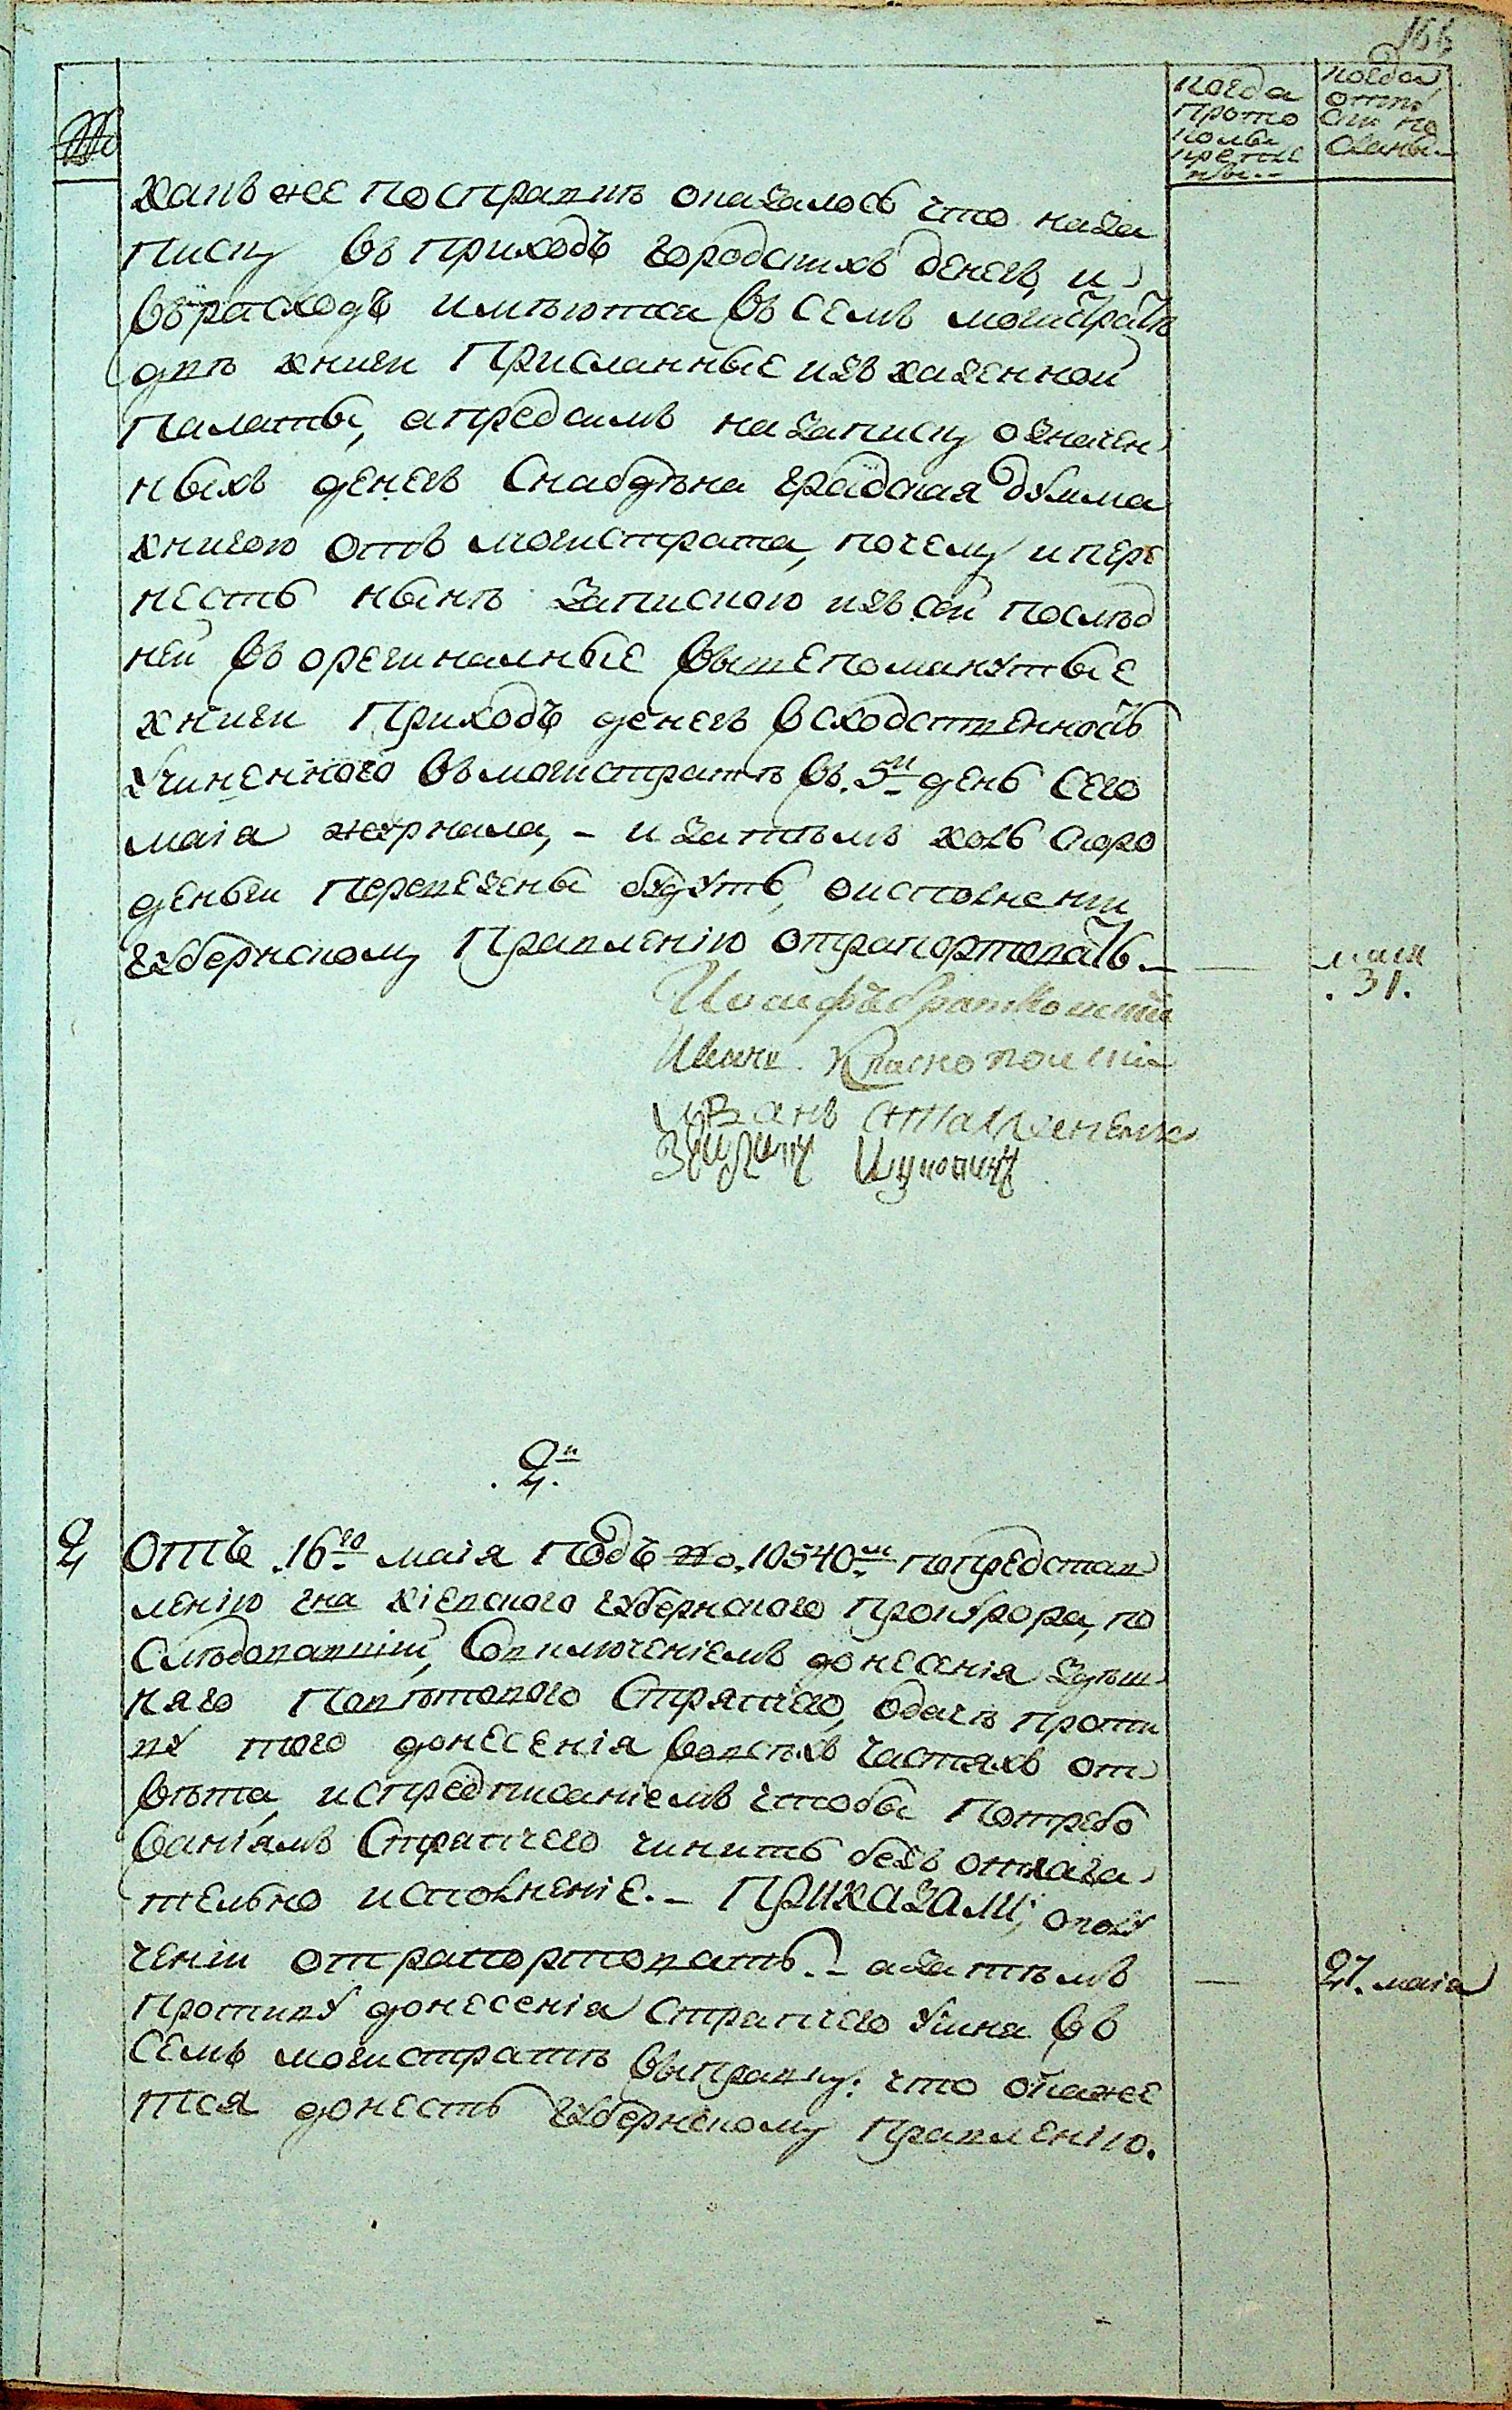 когда
прото
колы
крепле
ны.-
когда
отпу
ски по
сланы-
№
какъ же по справкѣ оказалось что на за
писку въ приходъ городскихъ денегъ, и
въ расходъ имѣются въ семъ магистратѣ
двѣ книги присланные изъ казенной
палаты, а пред симъ на записку означен
ныхъ денегъ снабдѣна градская дума
книгою отъ магистрата, почему и пере
несть нынѣ запискою изъ сей послѣд
ней въ орегиналные вышепомянутые
книги приходъ денегъ в сходственность
учиненного въ магистратѣ въ 5й день сего
маіа журнала, - и затѣмъ коль скоро
деньги перевезены будутъ, о исполненіи
губернскому правленію отрапортовать.-
маія
31.
Иванъ
2й
2
Отъ 16го маія подъ №о 10540м по представ
ленію гна кіевского губернского прокурора, по
слѣдовавшій, со включеніемъ донесенія здѣш
няго повѣтового стряпчего, о дачѣ проти
ву того донесенія во всѣхъ частяхъ от
вѣта, и с предписаніемъ чтобы по требо
ваніямъ стряпчего чинить безъ отлага
тельно исполненіе.- Приказали; о полу
ченіи отрапортовать.- а затѣмъ
противу донесенія стряпчего учиня въ
семъ магистратѣ выправку: что окаже
тся донесть губернскому правленію.
27. маіа